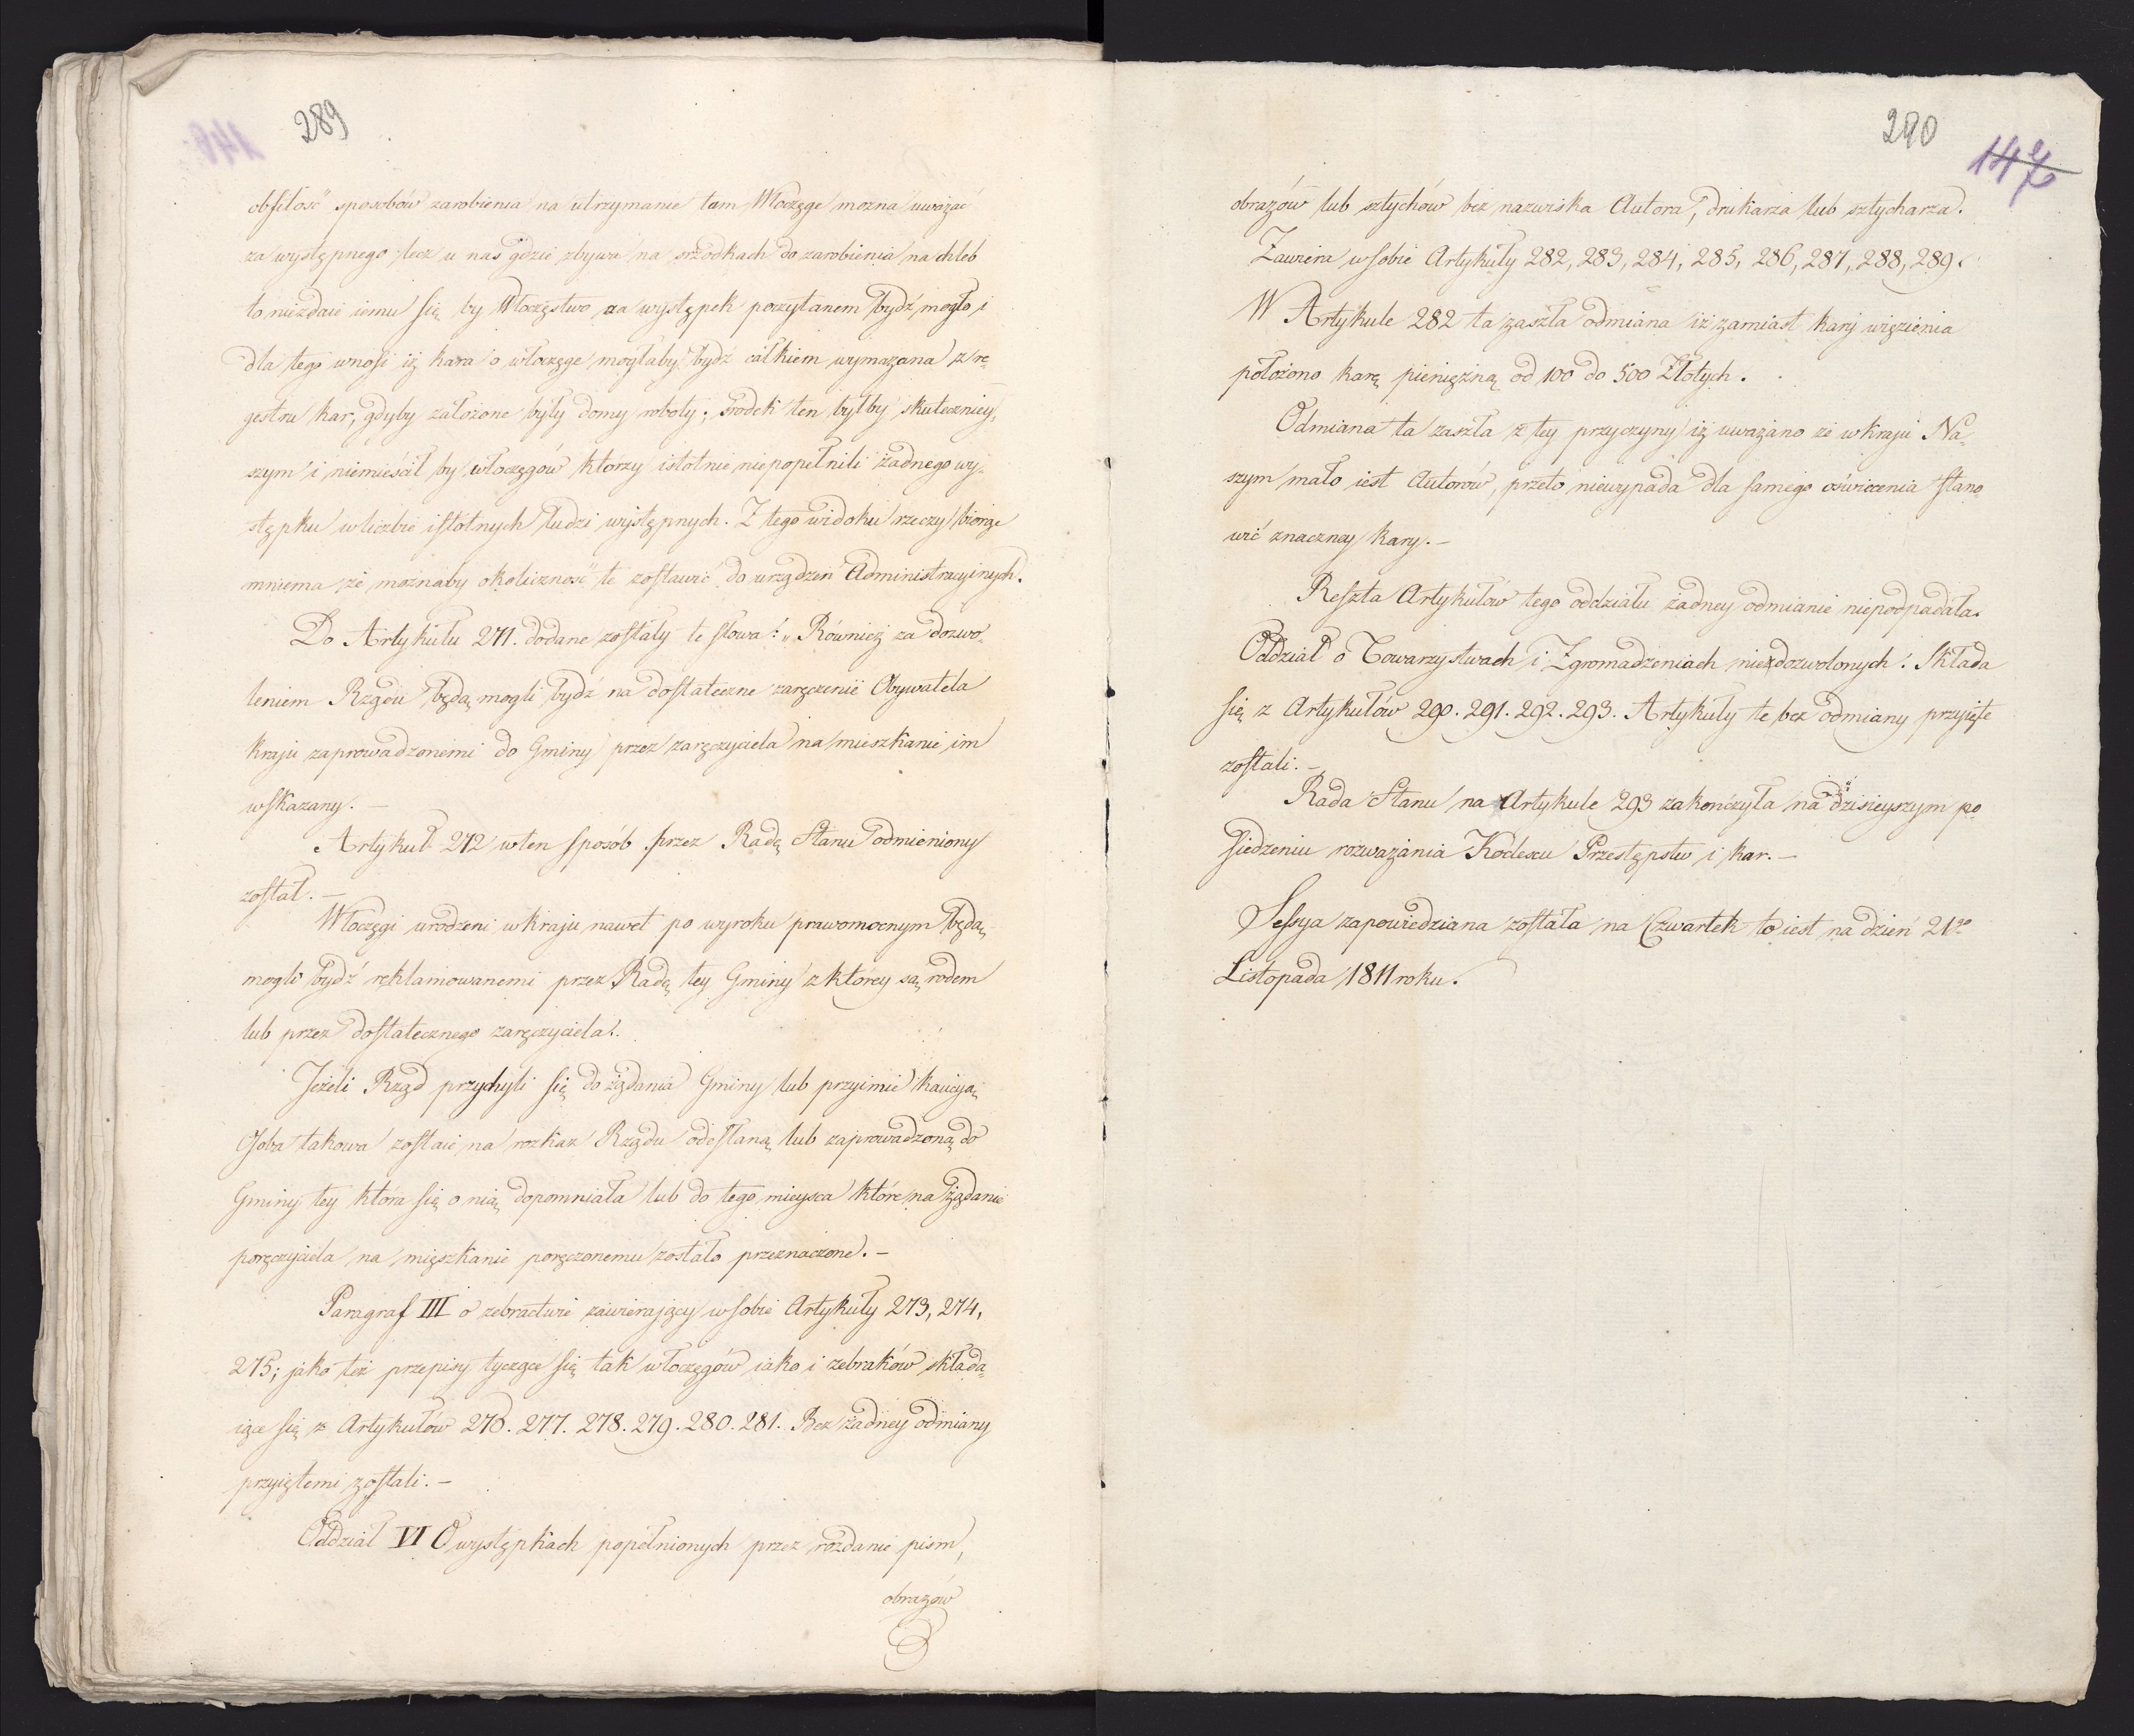 289
obfitość sposobów zarobienia na utrzymanie tam Włoczęgę można uważać
za występnego; lecz u nas gdzie zbywa na srzodkach do zarobienia na chleb
to niezdaie iemu się by Włoczęstwo za występek poczytanem bydź mogło i
dla tego wnosi iż kara o włoczęgę mogłaby bydź całkiem wymazana z re„
gestru kar, gdyby założone były domy roboty; srodek ten byłby skuteczniey„
szym i niemieścił by włoczęgów którzy istotnie niepopełnili żadnego wy„
stępku w liczbie istotnych ludzi występnych. Z tego widoku rzeczy biorąc
mniema że możnaby okoliczność te zostawić do urządzeń Administracyinych.
Do Artykułu 271. dodane zostały te słowa: „Również za dozwo„
leniem Rządu będą mogli bydź na dostateczne zaręczenie Obywatela
kraju zaprowadzonemi do Gminy przez zaręczyciela na mieszkanie im
wskazany. —
Artykuł 272 w ten sposób przez Radę Stanu odmieniony
został. —
Włoczęgi urodzeni w kraju nawet po wyroku prawomocnym będą
mogli bydź reklamowanemi przez Radę tey Gminy z którey są rodem
lub przez dostatecznego zaręczyciela.
Jeżeli Rząd przychyli się do żądania Gminy lub przyimie kaucyą
Osoba takowa zostaie na rozkaz Rządu odesłaną lub zaprowadzoną do
Gminy tey która się o nią dopomniała lub do tego mieysca które na żądanie
poręczyciela na mięszkanie poręczonemu zostało przeznaczone. —
Paragraf III o żebractwie zawierający w sobie Artykuły 273, 274,
275; jako też przepisy tyczące się tak włoczęgów iako i żebraków składa„
iące się z Artykułów 276. 277. 278. 279. 280. 281. Bez żadney odmiany
przyiętemi zostali. —
Oddział VI O występkach popełnionych przez rozdanie pism,
obrazów
290
147
obrazów lub sztychów bez nazwiska Autora, drukarza lub sztycharza.
Zawiera w sobie Artykuły 282, 283, 284, 285, 286, 287, 288, 289.
W Artykule 282 ta zaszła odmiana iż zamiast kary więzienia
położono karę pieniężną od 100 do 500 Złotych.
Odmiana ta zaszła z tey przyczyny iż uważano że w kraju Na„
szym mało iest Autorów, przeto niewypada dla samego oświecenia stano„
wić znaczney kary. —
Reszta Artykułów tego oddziału żadney odmianie niepodpadała.
Oddział o Towarzystwach i Zgromadzeniach niedozwolonych: składa
się z Artykułów 290. 291. 292. 293. Artykuły te bez odmiany przyjęte
zostali. —
Rada Stanu na Artykule 293 zakończyła na dzisieyszym po
siedzeniu rozważania Kodexu Przestępstw i kar. —
Sessya zapowiedziana została na Czwartek to iest na dzień 21go
Listopada 1811 roku.